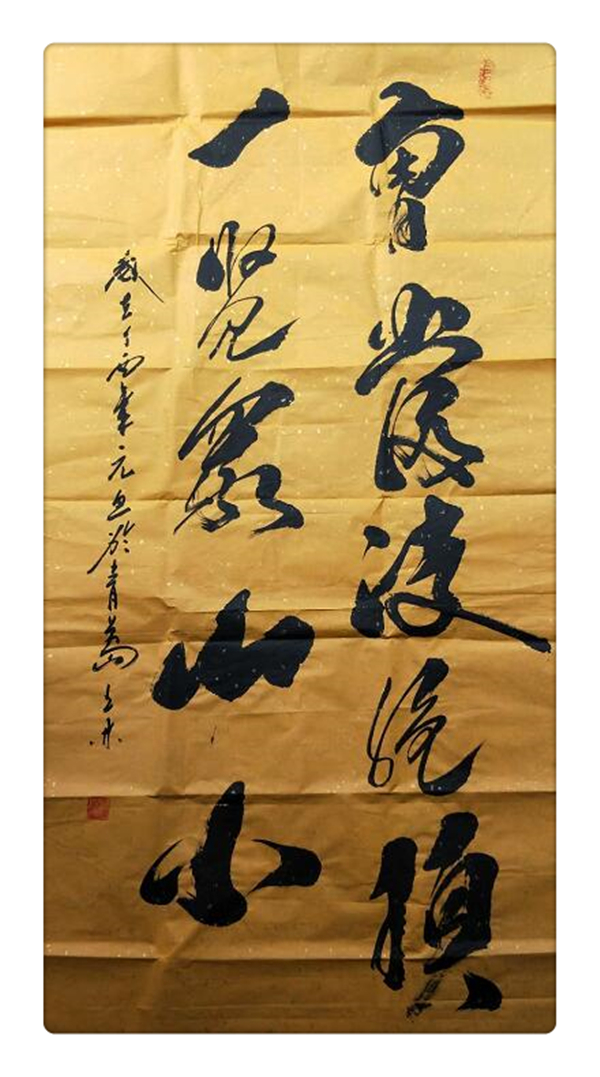 會當凌絕頂
一覽眾山小
歲在丁酉年元旦於青島